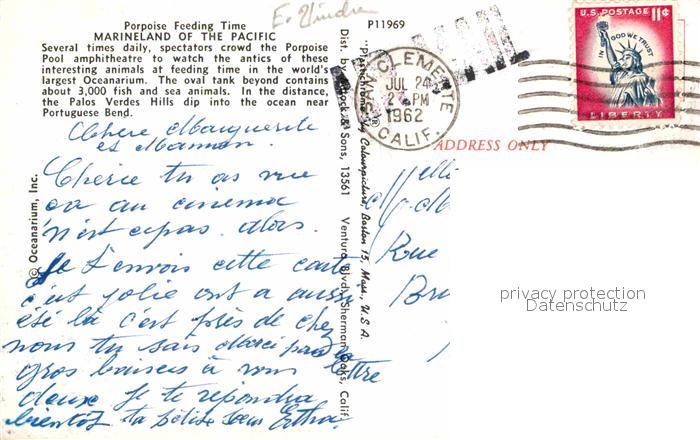 Porpoise Feeding Time
MARINELAND OF THE PACIFIC
Several times daily, spectators crowd the Porpoise
Pool amphitheatre to watch the antics of these
interesting animals at feeding time in the world's
largest Oceanarium. The oval tank beyond contains
about 3,000 fish and sea animals. In the distance,
the Palos Verdes Hills dip into the ocean near
Portuguese Bend.
© Oceanarium, Inc.
P11969
Dist. by & Sons, 13561 Ventura Blvd., Sherman Oaks, Calif.
"Plastichrome" by Colourpicture, Boston 15, Mass., U.S.A.
CLEMENTE
JUL 24
2 PM
1962
CALIF.
U.S. POSTAGE 11¢
IN GOD WE TRUST
LIBERTY
ADDRESS ONLY
Chère Marguerite
et Maman.
Chérie tu as vue
ca au cinema
n'est ce pas. alors.
Je t'envois cette carte
c'est jolie ont a aussi
été là c'est près de chez
nous tu sais Merci pour lettre
gros baisers à vous
deux. Je te repondra
bientôt ta petite seur
Melle
Rue
Bru
privacy protection
Datenschutz